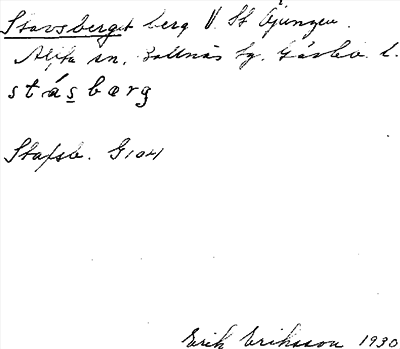 Stavsberget berg V. St Öjungen.
Alfta sn. Bollnäs tg. Gävleb. l.
stásbærg
Stafsb. G104
Erik Eriksson 1930